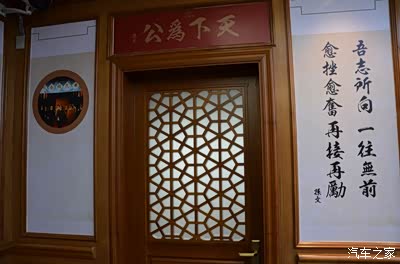 天下爲公
吾志所向一往無前
愈挫愈奮再接再勵
孫文
汽车之家